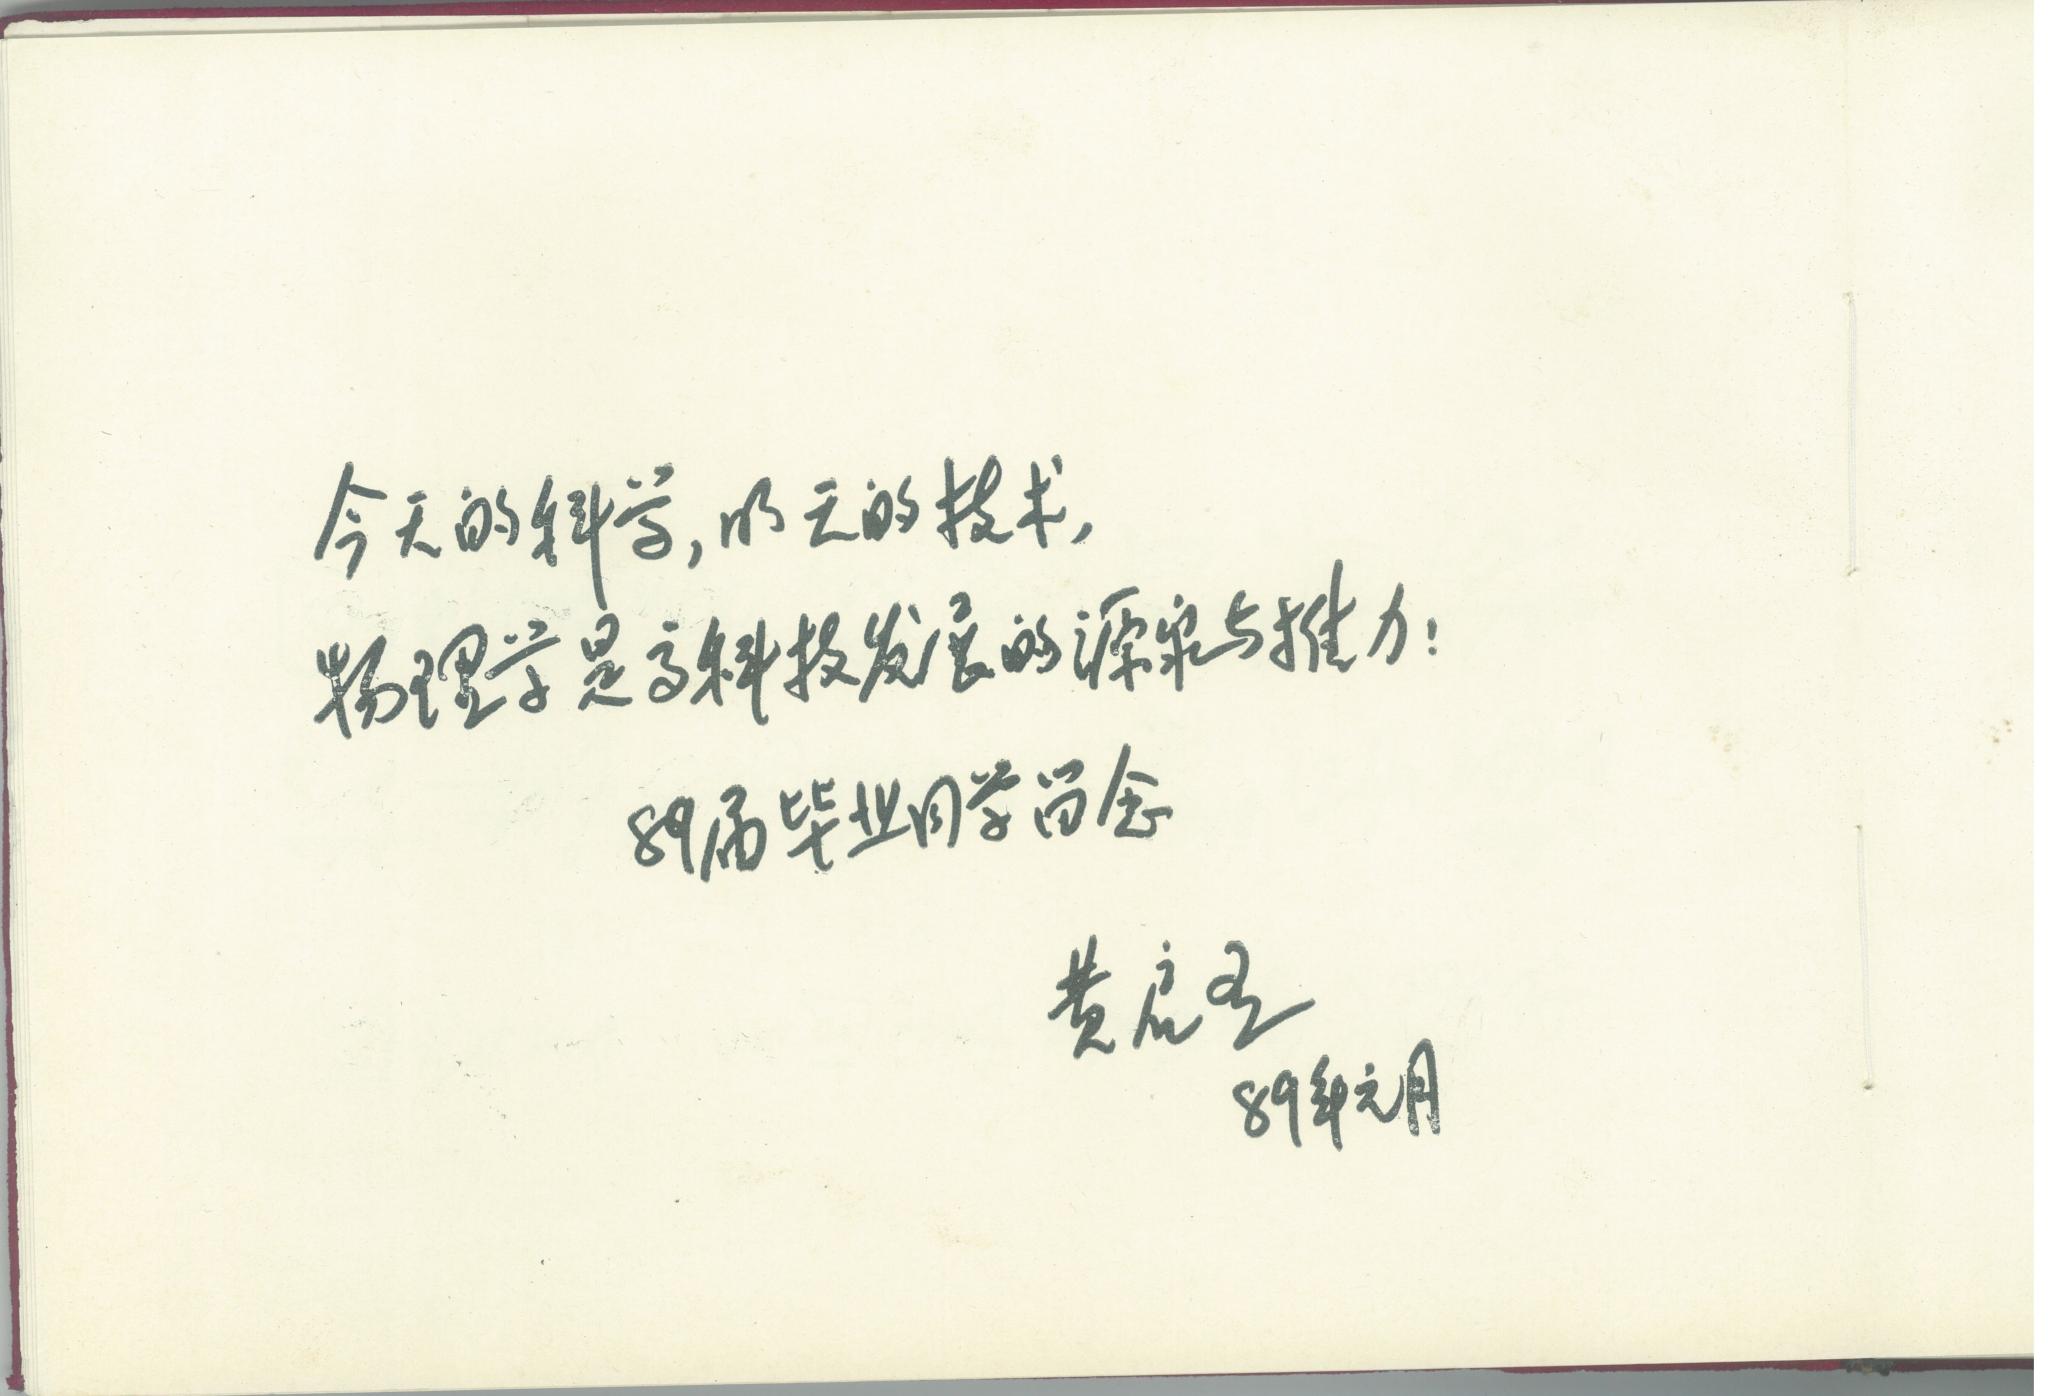 今天的科学,明天的技术,
物理学是高科技发展的源泉与推力!
89届毕业同学留念
黄
89年元月